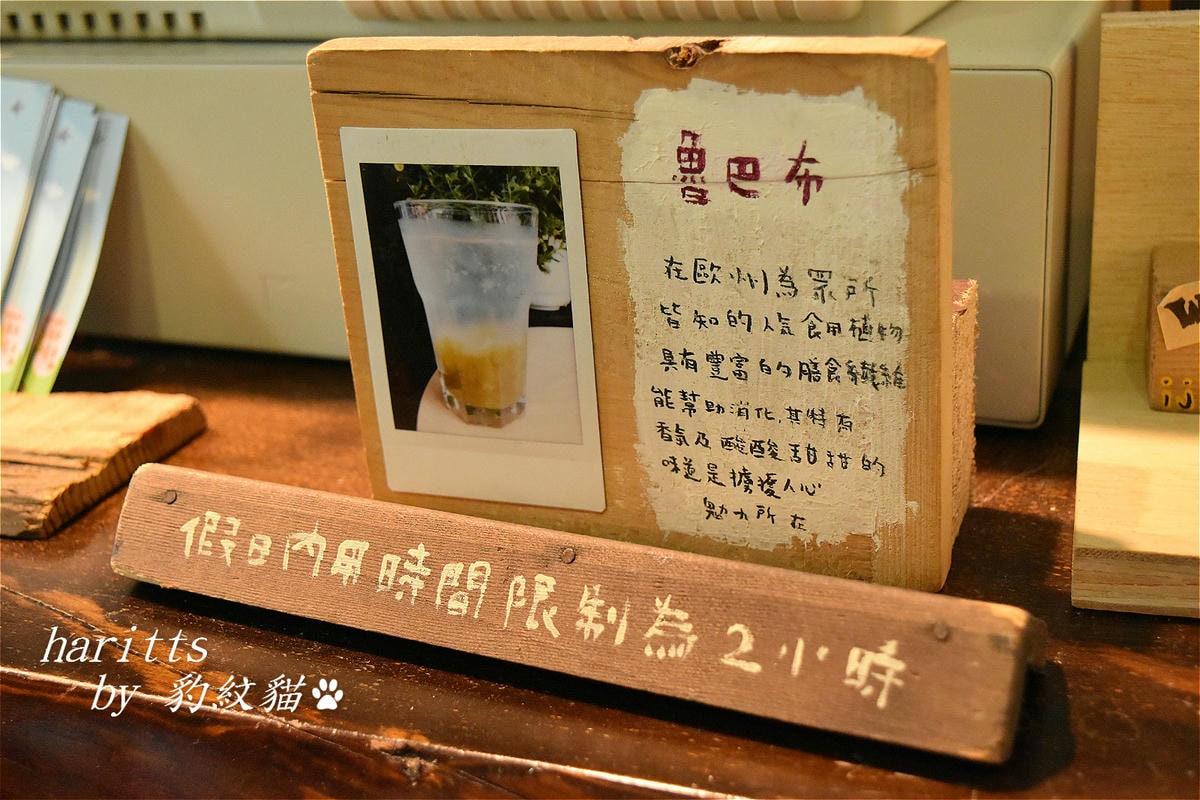 魯巴布
在歐州為眾所
皆知的人氣食用植物
具有豐富的膳食纖維
能幫助消化,其特有
香氣及酸酸甜甜的
味道是擄獲人心
魅力所在
假日內用時間限制為2小時
haritts
by 豹紋貓